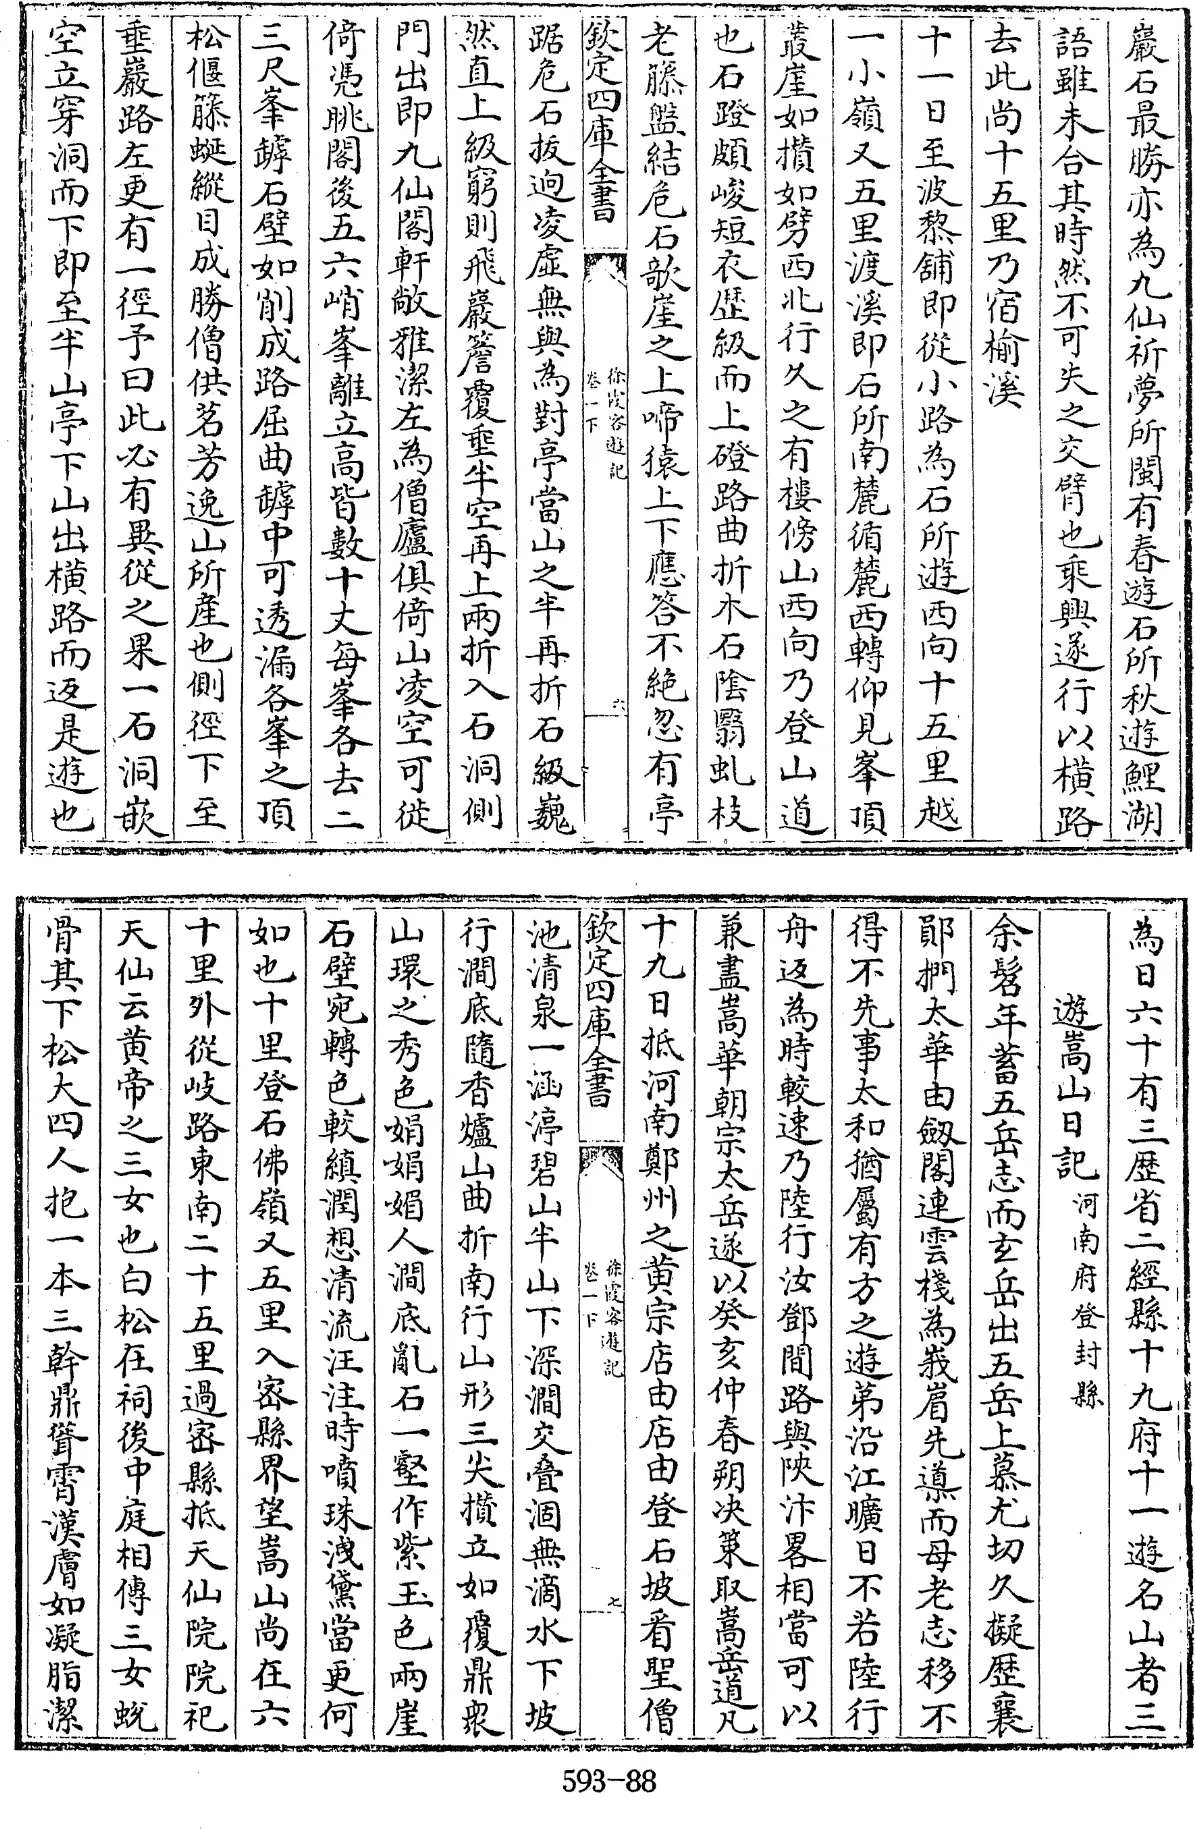 巖石最勝亦為九仙祈夢所閩有春遊石所秋遊鯉湖
語雖未合其時然不可失之交臂也乘興遂行以橫路
去此尚十五里乃宿榆溪
十一日至波黎舖即從小路為石所遊西向十五里越
一小嶺又五里渡溪即石所南麓循麓西轉仰見峯頂
叢崖如攅如劈西北行久之有樓傍山西向乃登山道
也石蹬頗峻短衣歴級而上磴路曲折木石陰翳虬枝
老籐盤結危石欹崖之上啼猿上下應答不絶忽有亭
欽定四庫全書
徐霞客遊記
卷一下
六
踞危石拔迥凌虛無與為對亭當山之半再折石級巍
然直上級窮則飛巖簷覆垂半空再上兩折入石洞側
門出即九仙閣軒敞雅潔左為僧廬俱倚山凌空可徙
倚憑眺閣後五六峭峯離立高皆數十丈每峯各去二
三尺峯罅石壁如削成路屈曲罅中可透漏各峯之頂
松偃籐蜒縱目成勝僧供茗芳逸山所産也側徑下至
垂巖路左更有一徑予曰此必有異從之果一石洞嵌
空立穿洞而下即至半山亭下山出橫路而返是遊也
為日六十有三歴省二經縣十九府十一遊名山者三
遊嵩山日記河南府登封縣
余髫年蓄五岳志而玄岳出五岳上慕尤切久擬歴襄
鄖捫太華由劔閣連雲棧為峩眉先導而母老志移不
得不先事太和猶屬有方之遊第沿江曠日不若陸行
舟返為時較速乃陸行汝鄧間路與陜汴畧相當可以
兼盡嵩華朝宗太岳遂以癸亥仲春朔決策取嵩岳道凡
十九日抵河南鄭州之黄宗店由店由登石坡看聖僧
欽定四庫全書
徐霞客遊記
卷一下
七
池清泉一涵渟碧山半山下深澗交叠涸無滴水下坡
行澗底隨香爐山曲折南行山形三尖攅立如覆鼎衆
山環之秀色娟娟媚人澗底亂石一壑作紫玉色兩崖
石壁宛轉色較縝潤想清流汪注時噴珠洩黛當更何
如也十里登石佛嶺又五里入宻縣界望嵩山尚在六
十里外從岐路東南二十五里過宻縣抵天仙院院祀
天仙云黄帝之三女也白松在祠後中庭相傳三女蛻
骨其下松大四人抱一本三幹鼎聳霄漢膚如凝脂潔
593-88